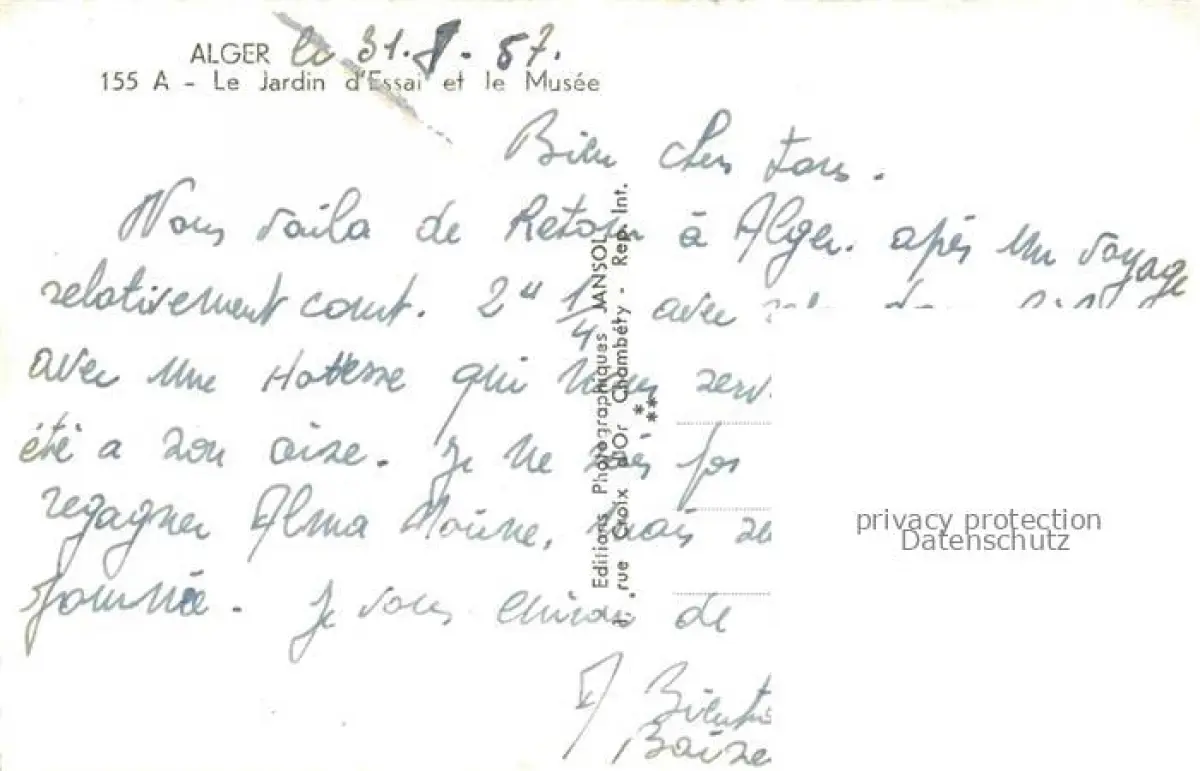 ALGER le 31.8.57.
155 A - Le Jardin d'Essai et le Musée
Bien chers tous.
Nous voila de Retour à Alger. après un voyage
relativement court. 2 H 1/4 avec
avec une Hottesse qui nous serv
été a son aise. Je ne
regagner Alma Marine, mais
journée. Je vous de
A Bientô
Baise
Editions Photographiques JANSOL
rue Croix d'Or Chambéty - Rep. Int.
privacy protection
Datenschutz